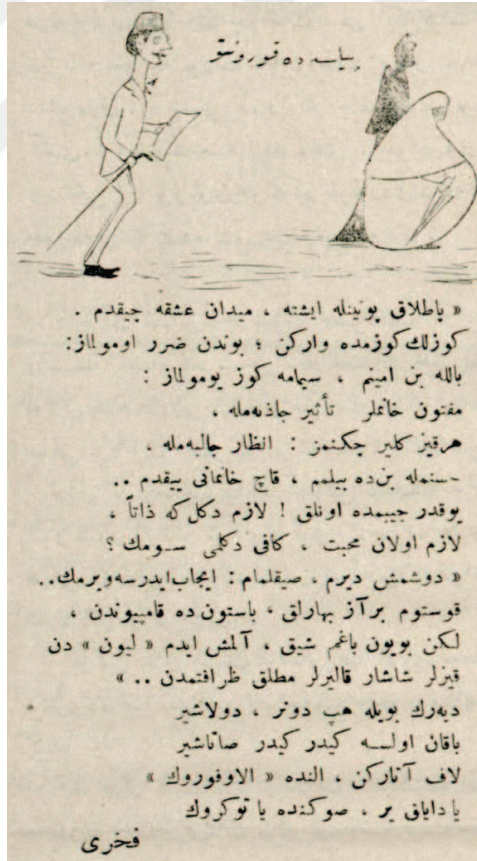 پیاسه ده قورونتو
« پاطلاق پوتینله ایشته ، میدان عشقه چیقدم .
كوزلك كوزمده واركن ؛ بوندن ضرر اومولماز:
بالله بن امینم ، سیمامه كوز یومولماز :
مفتون خانملر تأثیر جاذبه‌مله ،
هرقیز كلیر چكنمز : انظار جالبه‌مله .
حسنمله بن‌ده بیلمم ، قاچ خانمانی ییقدم ..
یوقدر جیبمده اونلق ! لازم دكل‌كه ذاتاً ،
لازم اولان محبت ، كافی دكلمی سـومك ؟
« دوشمش دیرم ، صیقلمام : ایجاب ایدرسه‌ویرمك..
قوستوم برآز بهارلق ، باستون ده قامپیوندن ،
لكن بویون باغم شیق ، آلمش ایدم « لیون » دن
قیزلر شاشار قالیرلر مطلق ظرافتمدن .. »
دیه‌رك بویله هپ دونر ، دولاشیر
باقان اولسه كیدر كیدر صاتاشیر
لاف آتاركن ، النده « الاوفوروك »
یا دایاق یر ، صوكنده یا توكروك
فخری